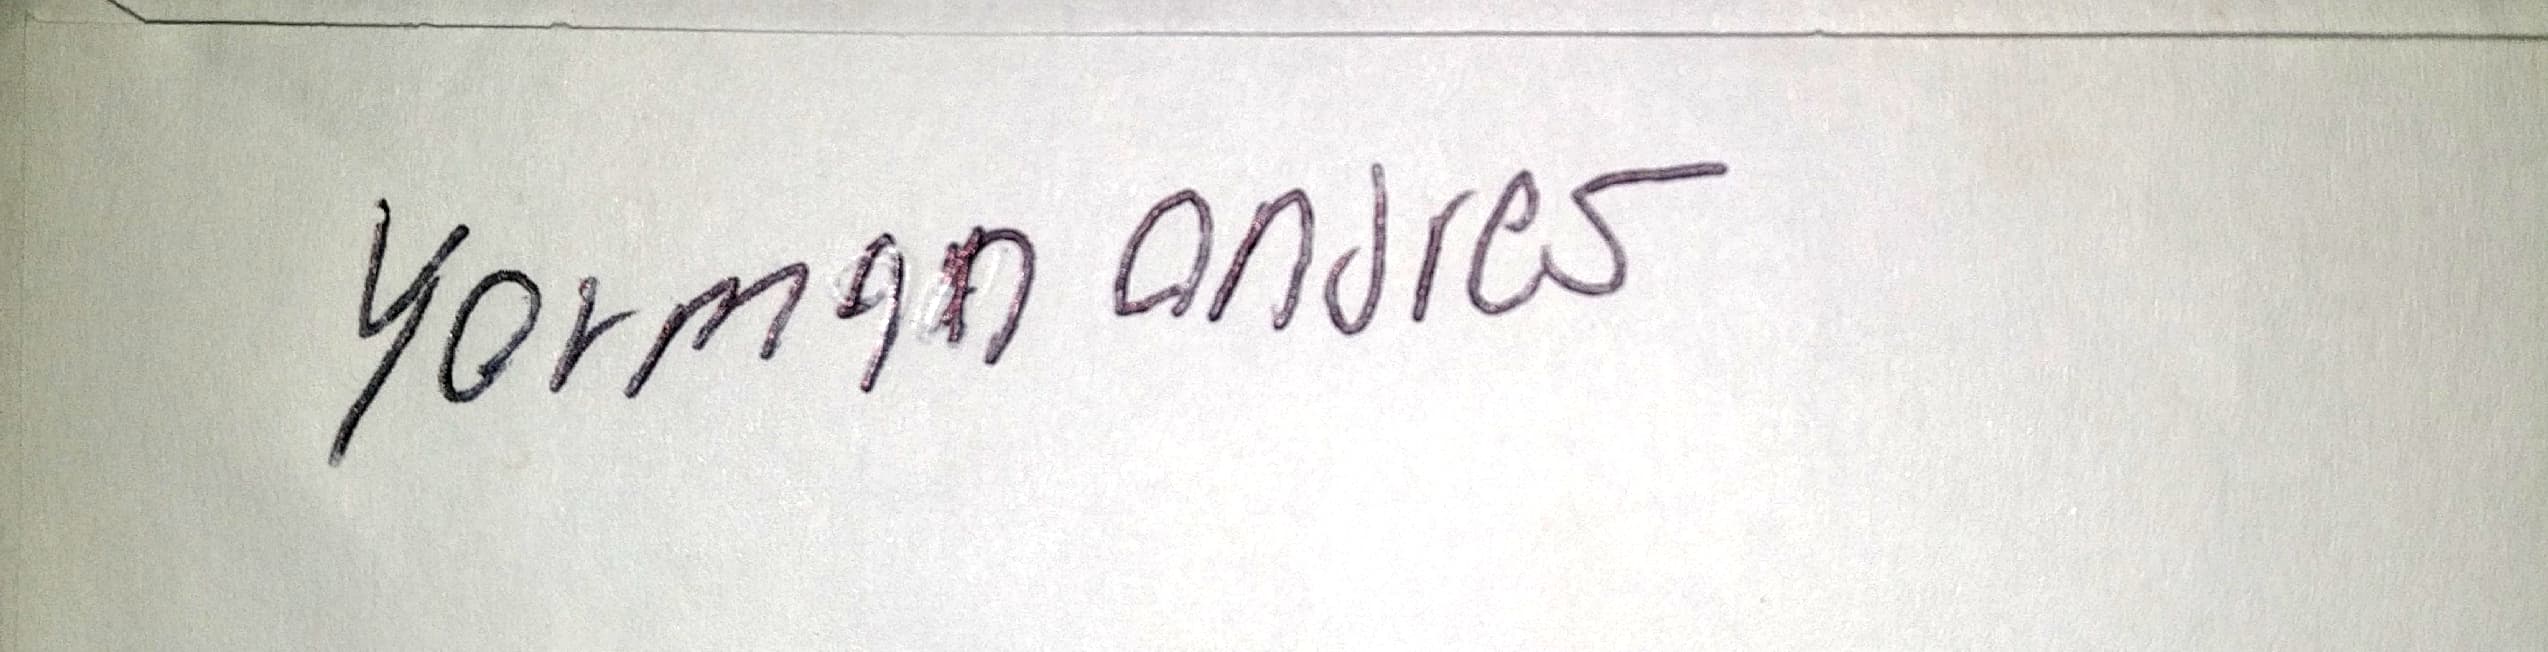 Yorman andres